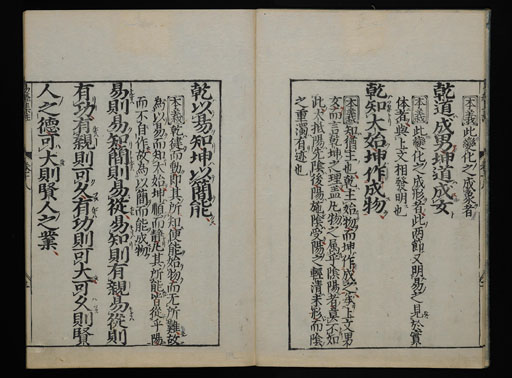 本義此變化之成象者
乾道成男坤道成女
本義此變化之成形者此兩節又明易之見於實
體者與上文相發明也
乾知大始坤作成物
本義知猶主也乾主始物而坤作成之承上文男
女而言乾坤之理蓋凡物之屬乎陰陽者莫不如
此大抵陽先陰後陽施陰受陽之輕清未形而陰
之重濁有迹也
乾以易知坤以簡能
本義乾健而動即其所知便能始物而无所難故
為以易而知大始坤順而靜凡其所能皆從乎陽
而不自作故為以簡而能成物
易則易知簡則易從易知則有親易從則
有功有親則可久有功則可大可久則賢
人之德可大則賢人之業